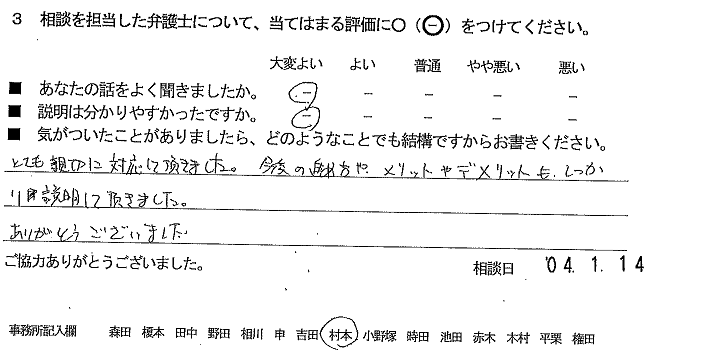 3 相談を担当した弁護士について、当てはまる評価に○（㊀）をつけてください。
大変よい よい 普通 やや悪い 悪い
■ あなたの話をよく聞きましたか。 － － － － －
■ 説明は分かりやすかったですか。 － － － － －
■ 気がついたことがありましたら、どのようなことでも結構ですからお書きください。
とても親切に対応して頂きました。今後の や、メリットやデメリットも、しっか
り 説明して頂きました。
ありがとうございました
ご協力ありがとうございました。
相談日 '04.1.14
事務所記入欄 森田 榎本 田中 野田 相川 申 吉田 村本 小野塚 時田 池田 赤木 木村 平栗 権田